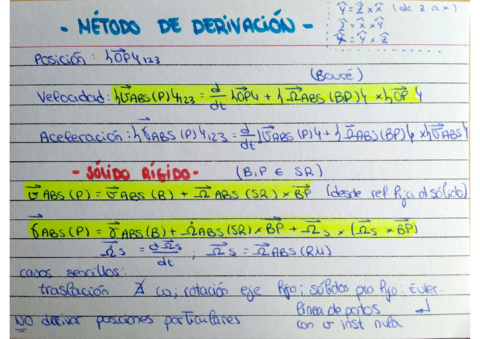 - MÉTODO DE DERIVACIÓN -
ŷ = ẑ × x̂ (de z a x)
ẑ = x̂ × ŷ
x̂ = ŷ × ẑ
Posición: {OP}123
(Base)
Velocidad: {v̄ABS(P)}123 = d/dt {OP} + {Ω̄ABS(BP)} × {OP}
Aceleración: {γ̄ABS(P)}123 = d/dt {v̄ABS(P)} + {Ω̄ABS(BP)} × {v̄ABS}
- SÓLIDO RÍGIDO - (B,P ∈ SR)
v̄ABS(P) = v̄ABS(B) + Ω̄ABS(SR) × BP (desde ref fija al sólido)
γ̄ABS(P) = γ̄ABS(B) + Ω̇ABS(SR) × BP + Ω̄s × (Ω̄s × BP)
Ω̇s = dΩ̄s/dt ; Ω̄s = Ω̄ABS(RM)
casos sencillos:
traslación ∄ ω; rotación eje fijo; sólidos pto fijo: Euler.
NO derivar posiciones particulares
línea de ptos ↵
con v inst nula